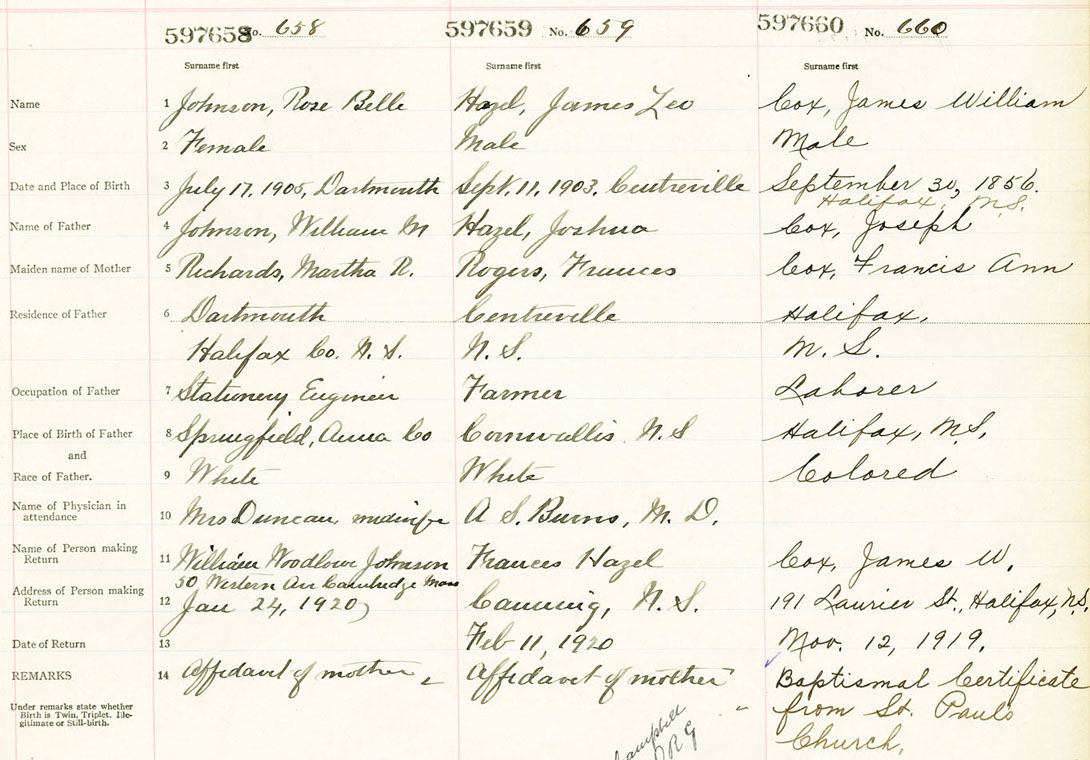 597658 No. 658 597659 No. 659 597660 No. 660
Surname first Surname first Surname first
Name 1 Johnson, Rose Belle Hazel, James Leo Cox, James William
Sex 2 Female Male Male
Date and Place of Birth 3 July 17, 1905, Dartmouth Sept. 11, 1903. Centreville September 30, 1856.
Halifax, N.S.
Name of Father 4 Johnson, William M Hazel, Joshua Cox, Joseph
Maiden name of Mother 5 Richards, Martha R. Rogers, Frances Cox, Francis Ann
Residence of Father 6 Dartmouth Centreville Halifax,
Halifax Co. N. S. N. S. N. S.
Occupation of Father 7 Stationery Engineer Farmer Laborer
Place of Birth of Father 8 Springfield, Anna Co Cornwallis N. S Halifax, N.S.
and
Race of Father. 9 White White Colored
Name of Physician in
attendance 10 Mrs Duncan, midwife A S. Burns, M. D.
Name of Person making
Return 11 William Johnson Frances Hazel Cox, James W.
50 Western Av Cambridge Mass
Address of Person making
Return 12 Jan 24, 1920 Canning, N. S. 191 Laurier St., Halifax, N.S.
Date of Return 13 Feb 11, 1920 Nov. 12, 1919.
REMARKS 14 Affidavit of mother Affidavit of mother Baptismal Certificate
Under remarks state whether
Birth is Twin, Triplet, Ille-
gitimate or Still-birth.
from St. Pauls
Church.
Campbell
DRG